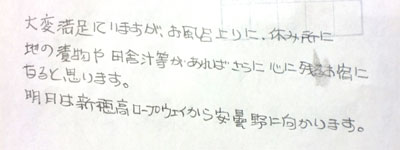 大変満足ていますが、お風呂上りに、休み所に
地の漬物や田舎汁等があればさらに心に残るお宿に
なると思います。
明日は新穂高ロープウェイから安曇野に向かります。